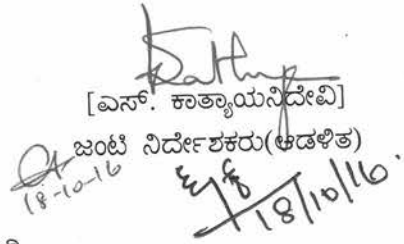 [ಎಸ್. ಕಾತ್ಯಾಯನಿದೇವಿ]
ಜಂಟಿ ನಿರ್ದೇಶಕರು(ಆಡಳಿತ)
18-10-16
18/10/16.